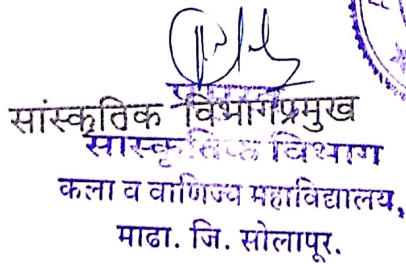 सांस्कृतिक विभागप्रमुख
सांस्कृतिक विभाग
कला व वाणिज्य महाविद्यालय,
माढा. जि. सोलापूर.